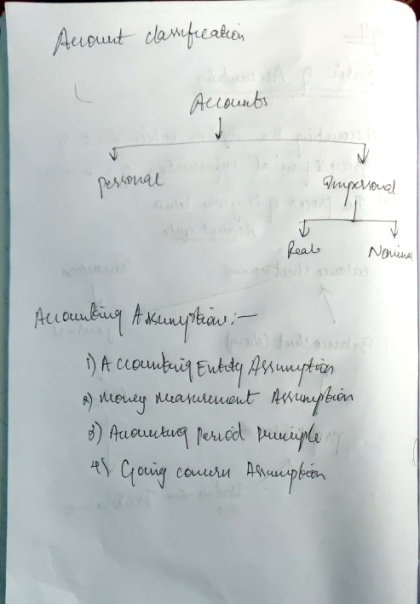 Account classification
Accounts
Personal
Impersonal
Real
Nomina
Accounting Assumption:-
1) Accounting Entity Assumption
2) Money Measurement Assumption
3) Accounting Period Principle
4) Going concern Assumption